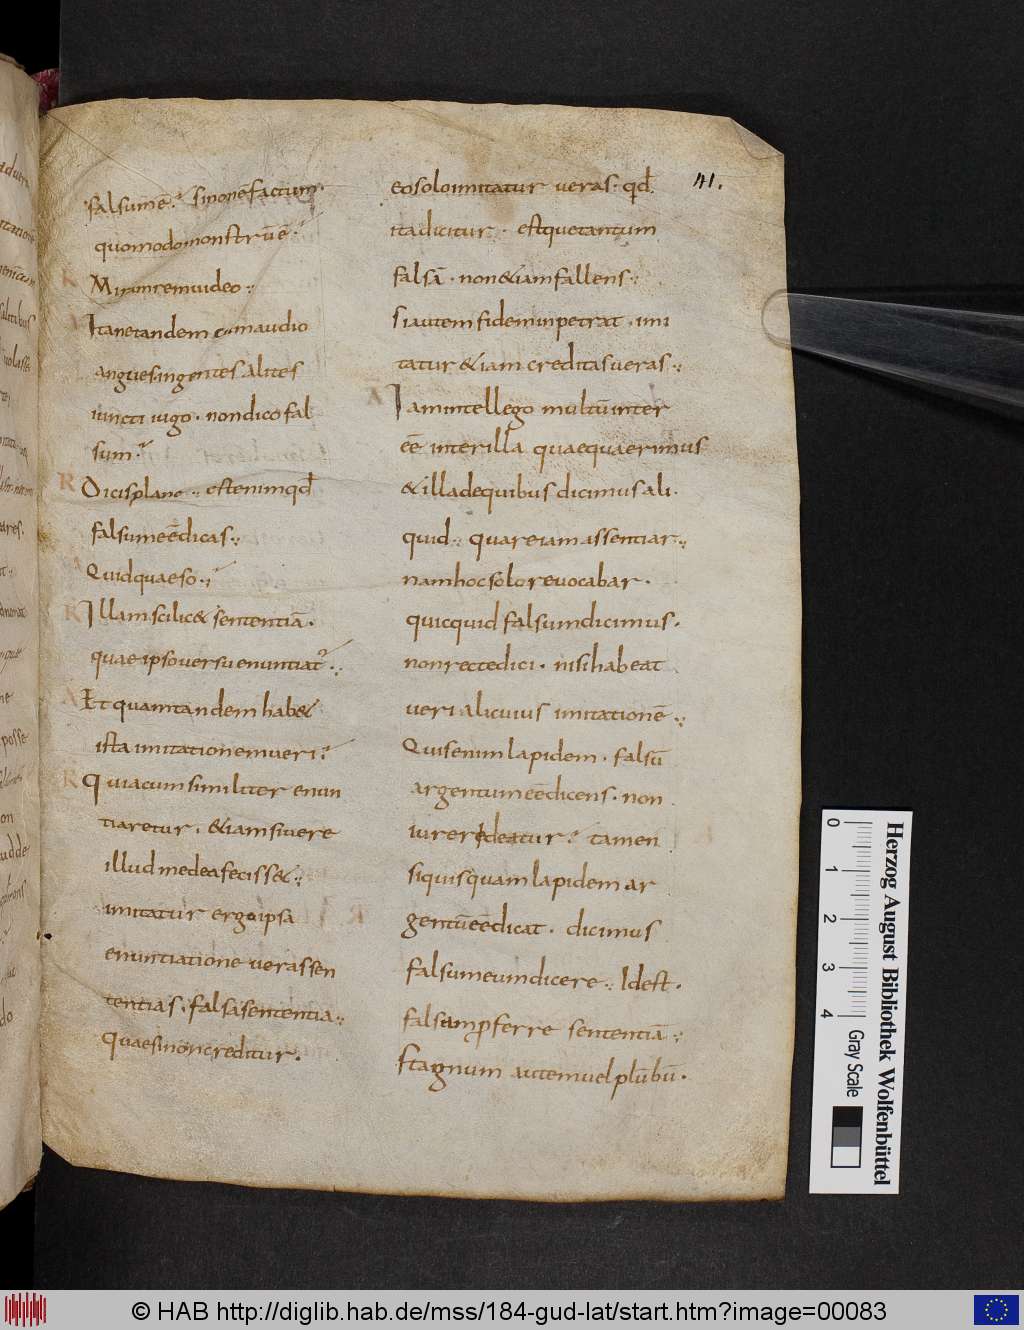 falsum ē? si non ē factum.
quomodo monstrū ē?
R Mirum rem uideo.
A Itane tandem cum audio
angues ingentes alites
iuncti iugo. non dico fal
sum?
R Dicis plane. est enim qđ
falsum eē dicas.
A Quid quaeso?
R Illam scilic& sententiā.
quae ipso uersu enuntiat᷒.
A Et quam tandem hab&
ista imitationem ueri?
R Quia cum similiter enun
tiaretur. &iam si uere
illud medea feciss&.
imitatur ergo ipsa
enuntiatione ueras sen
tentias. falsa sententia.
Quae si non creditur.
41.
eo solo imitatur ueras. qđ
ita dicitur. estque tantum
falsā. non &iam fallens.
Si autem fidem inpetrat. imi
tatur &iam creditas ueras.
A Iam intellego multū inter
eē inter illa quae quaerimus
& illa de quibus dicimus ali
quid. quare iam assentiar.
nam hoc solo reuocabar.
quicquid falsum dicimus.
non recte dici. nisi habeat
ueri alicuius imitationē.
Quis enim lapidem. falsū
argentum eē dicens. non
iure redeatur? tamen
si quisquam lapidem ar
gentū eē dicat. dicimus
falsum eum dicere. Id est.
falsam p̄ferre sententiā.
Stagnum autem uel plūbū.
0 1 2 3 4
Gray Scale
Herzog August Bibliothek Wolfenbüttel
© HAB http://diglib.hab.de/mss/184-gud-lat/start.htm?image=00083